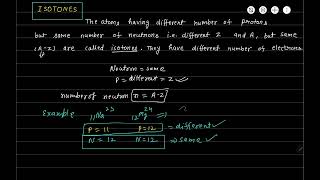 ISOTONES
The atoms having different number of protons
but same number of neutrons i.e. different Z and A, but same
(A-Z) are called isotones. They have different number of electrons
Neutron = same
P = different = Z
number of neutron n = A-Z
Example 11Na23 12Mg24
P = 11 P = 12 = different
N = 12 N = 12 => same